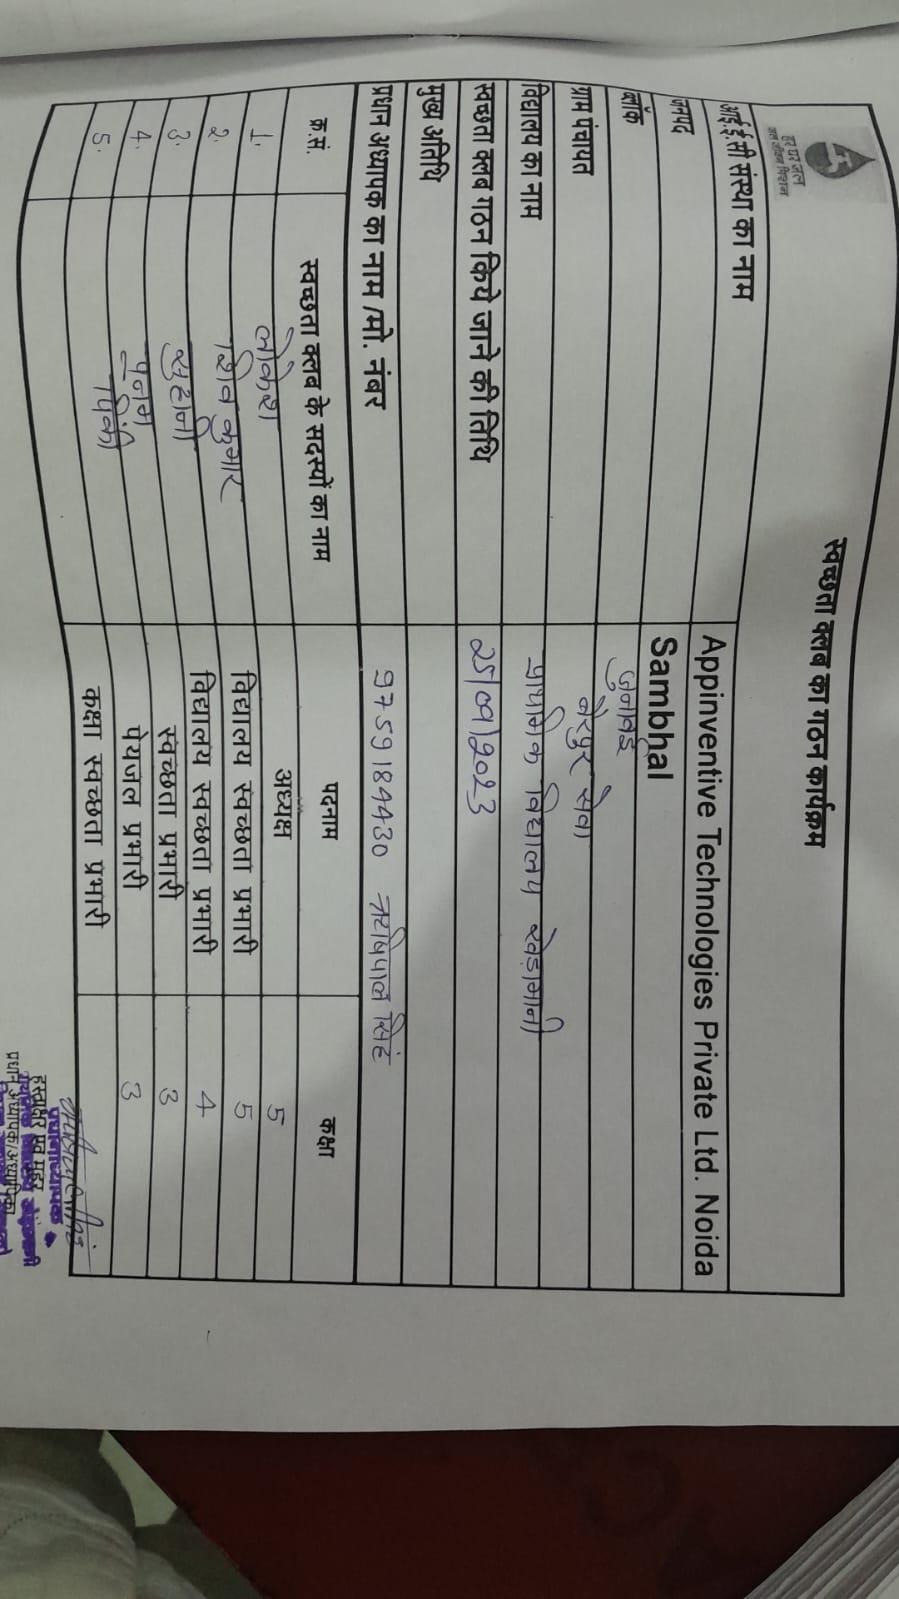 हर घर जल
जल जीवन मिशन
स्वच्छता क्लब का गठन कार्यक्रम
आई.ई.सी संस्था का नाम Appinventive Technologies Private Ltd. Noida
जनपद Sambhal
ब्लॉक जुनावई
ग्राम पंचायत सेवा
विद्यालय का नाम प्राथमिक विद्यालय
स्वच्छता क्लब गठन किये जाने की तिथि 25/09/2023
मुख्य अतिथि
प्रधान अध्यापक का नाम /मो. नंबर 9759184430 सिंह
क्र.सं. स्वच्छता क्लब के सदस्यों का नाम पदनाम कक्षा
1. लोकेश अध्यक्ष 5
2. शिव कुमार विद्यालय स्वच्छता प्रभारी 5
3. सुहानी विद्यालय स्वच्छता प्रभारी 4
4. पूनम स्वच्छता प्रभारी 3
5. पेयजल प्रभारी 3
कक्षा स्वच्छता प्रभारी
हस्ताक्षर एवं मुहर
प्रधान अध्यापक/अध्यापिका